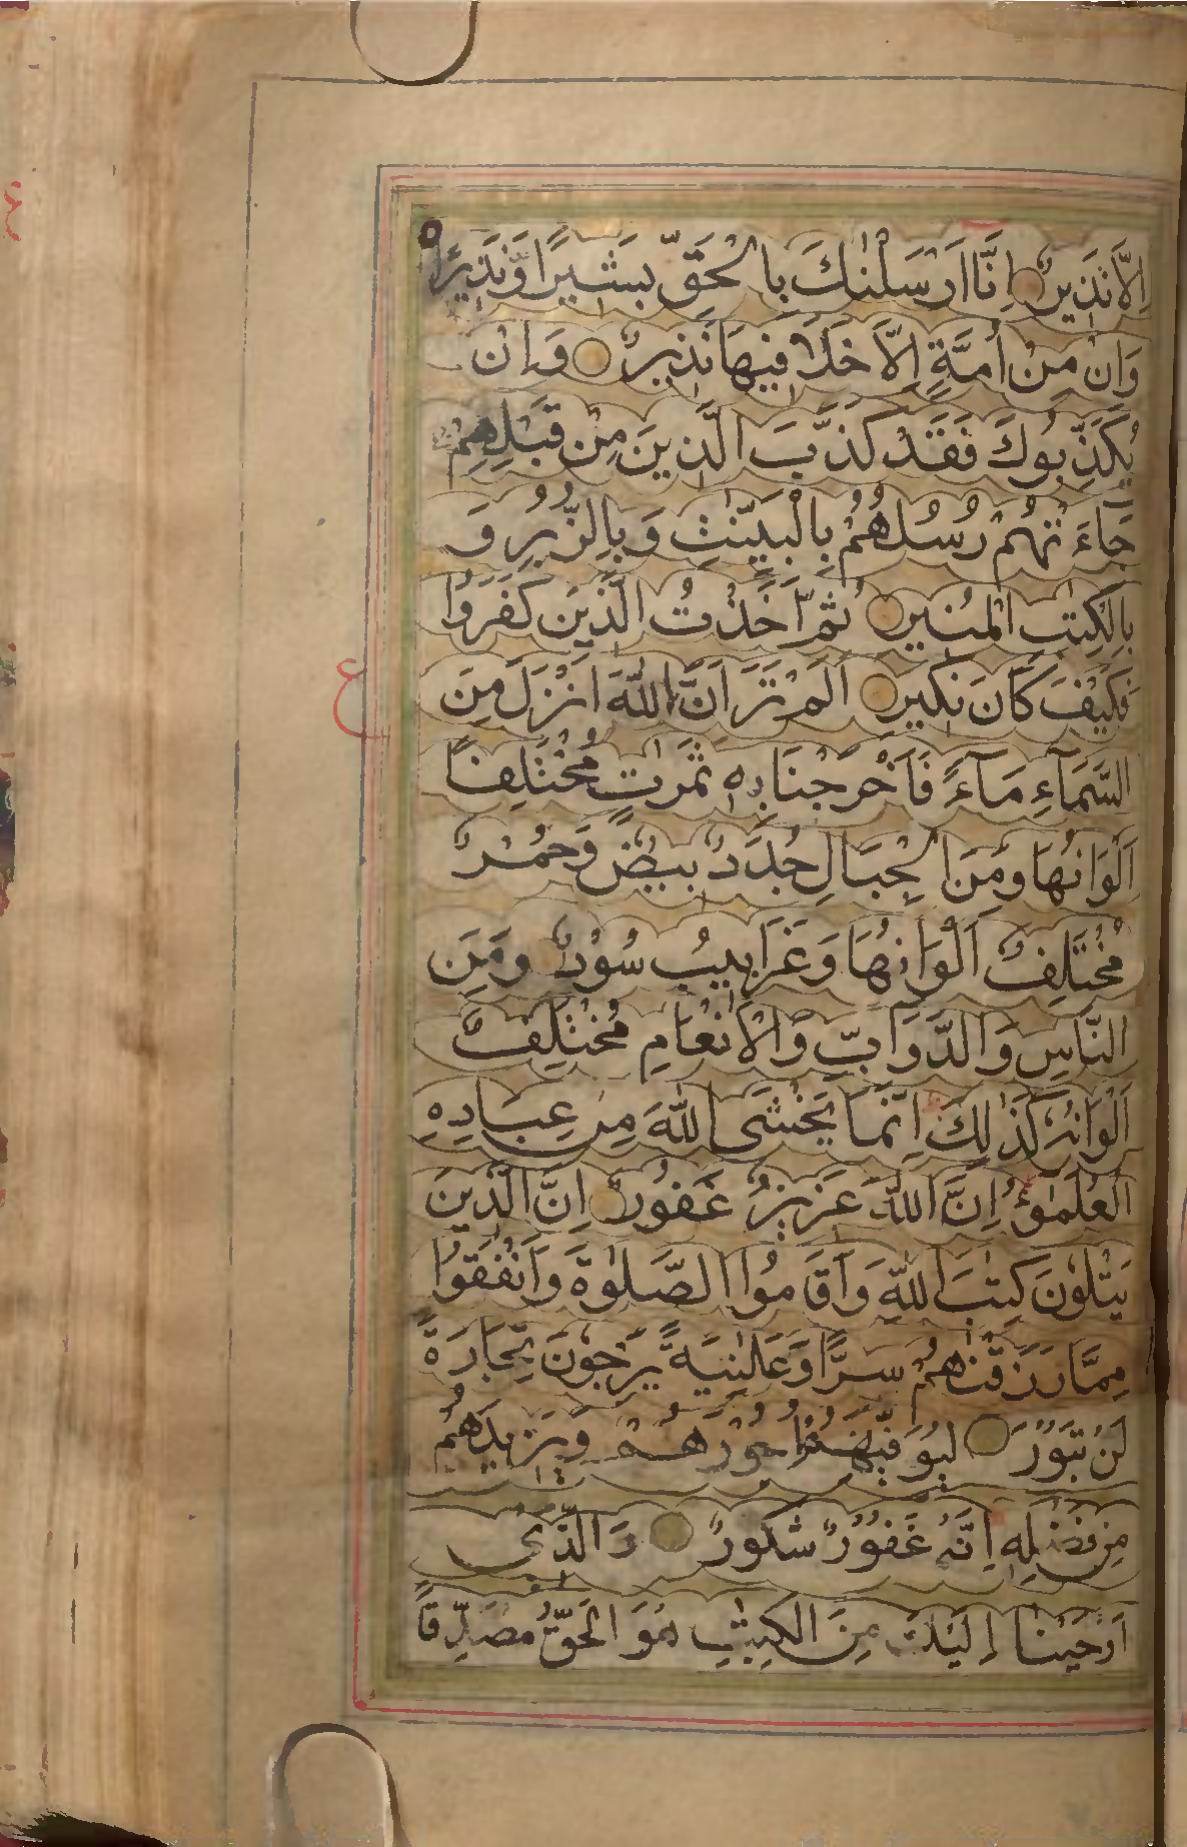 اِلَّا نَذِيرٌ اِنَّا اَرْسَلْنٰكَ بِالْحَقِّ بَشِيرًا وَّنَذِيْرًا
وَاِنْ مِنْ اُمَّةٍ اِلَّا خَلَا فِيهَا نَذِيرٌ وَاِنْ
يُكَذِّبُوكَ فَقَدْ كَذَّبَ الَّذِينَ مِنْ قَبْلِهِمْ
جَاءَتْهُمْ رُسُلُهُمْ بِالْبَيِّنٰتِ وَبِالزُّبُرِ وَ
بِالْكِتٰبِ الْمُنِيرِ ثُمَّ اَخَذْتُ الَّذِينَ كَفَرُوا
فَكَيْفَ كَانَ نَكِيرِ اَلَمْ تَرَ اَنَّ اللّٰهَ اَنْزَلَ مِنَ
السَّمَآءِ مَآءً فَاَخْرَجْنَا بِهٖ ثَمَرٰتٍ مُخْتَلِفًا
اَلْوَانُهَا وَمِنَ الْجِبَالِ جُدَدٌ بِيضٌ وَّحُمْرٌ
مُخْتَلِفٌ اَلْوَانُهَا وَغَرَابِيبُ سُوْدٌ وَمِنَ
النَّاسِ وَالدَّوَآبِّ وَالْاَنْعَامِ مُخْتَلِفٌ
اَلْوَانُهٗ كَذٰلِكَ اِنَّمَا يَخْشَى اللّٰهَ مِنْ عِبَادِهِ
الْعُلَمٰٓؤُ اِنَّ اللّٰهَ عَزِيزٌ غَفُورٌ اِنَّ الَّذِينَ
يَتْلُوْنَ كِتٰبَ اللّٰهِ وَاَقَامُوا الصَّلٰوةَ وَاَنْفَقُوْا
مِمَّا رَزَقْنٰهُمْ سِرًّا وَّعَلَانِيَةً يَّرْجُوْنَ تِجَارَةً
لَنْ تَبُوْرَ لِيُوَفِّيَهُمْ اُجُوْرَهُمْ وَيَزِيدَهُمْ
مِنْ فَضْلِهٖ اِنَّهٗ غَفُوْرٌ شَكُورٌ وَالَّذِيْ
اَوْحَيْنَا اِلَيْكَ مِنَ الْكِتٰبِ هُوَ الْحَقُّ مُصَدِّقًا
ع